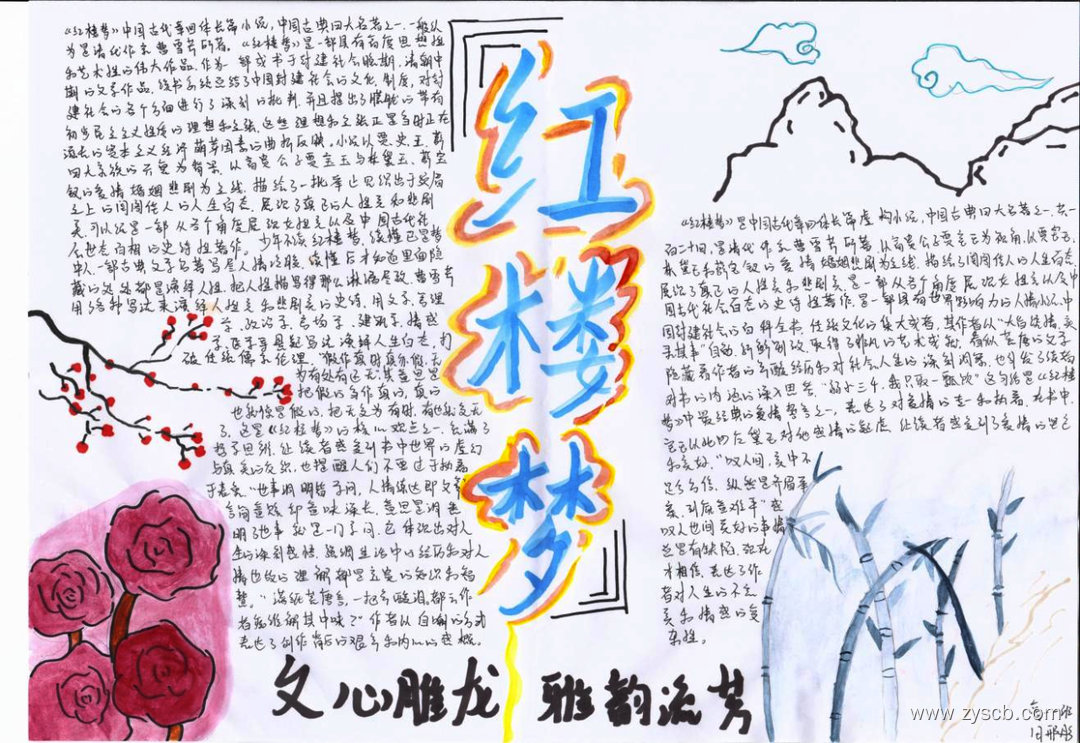 《红楼梦》中国古代章回体长篇小说，中国古典四大名著之一，一般认
为是清代作家曹雪芹所著。《红楼梦》是一部具有高度思想性
和艺术性的伟大作品，作为一部成书于封建社会晚期，清朝中
期的文学作品，该书系统总结了中国封建社会的文化、制度，对封
建社会的各个方面进行了深刻的批判，并且提出了朦胧的带有
初步民主主义性质的理想和主张。这些理想和主张正是当时正在
滋长的资本主义经济萌芽因素的曲折反映。小说以贾、史、王、薛
四大家族的兴衰为背景，以富贵公子贾宝玉与林黛玉、薛宝
钗的爱情婚姻悲剧为主线，描绘了一批举止见识出于须眉
之上的闺阁佳人的人生百态，展现了真正的人性美和悲剧
美，可以说是一部从各个角度展现女性美以及中国古代社
会世态百相的史诗性著作。少年不读红楼梦，读懂已是梦
中人，一部古典文学名著写尽人情冷暖，读懂后才知这里面隐
藏的处处都是演绎人性，把人性描写得那么淋漓尽致，曹雪芹
用了各种写法来演绎人性美和悲剧美的史诗，用文学、哲理
学，
破传统儒家伦理。"假作真时真亦假，无
为有处有还无"其意思是
把假的当作真的，真的
也就像是假的，把无变为有时，有也就变无
了，这是《红楼梦》的核心观点之一，充满了
哲学思辨，让读者感受到书中世界的虚幻
与真实的交织，也提醒人们不要过于执着
于表象。"世事洞明皆学问，人情练达即文章"
明了世事就是一门学问，它体现出对人
生的深刻感悟，强调生活中的经历和对人
情世故的理解都是宝贵的知识和智
慧。"满纸荒唐言，一把辛酸泪，都云作
者痴，谁解其中味？"作者以自嘲的方式
表达了创作背后的艰辛和内心的感慨。
红楼梦
《红楼梦》是中国古代章回体长篇虚构小说，中国古典四大名著之一，共一
百二十回，是清代作家曹雪芹所著，以富贵公子贾宝玉为视角，以贾宝玉、
林黛玉和薛宝钗的爱情婚姻悲剧为主线，描绘了闺阁佳人的人生百态，
展现了真正的人性美和悲剧美，是一部从各个角度展现女性美以及中
国古代社会百态的史诗性著作，是一部具有世界影响力的人情小说，中
国封建社会的百科全书，传统文化的集大成者，其作者以"大旨谈情，实
录其事"自勉，
隐藏着作者的辛酸经历和对社会人生的深刻洞察，也引发了读者
对书的内涵的深入思考，"弱水三千，我只取一瓢饮"这句话是《红楼
梦》中最经典的爱情誓言之一，表达了对爱情的专一和执着，在书中，
宝玉以此回应黛玉对他感情的疑虑，让读者感受到了爱情的坚定
和美好，"叹人间，美中不
足今方信，纵然是齐眉举
案，到底意难平"感
叹人世间美好的事情
总是有缺陷，现在
才相信，表达了作
者对人生的不完
美和情感的复
杂性。
文心雕龙 雅韵流芳
www.zyscb.com